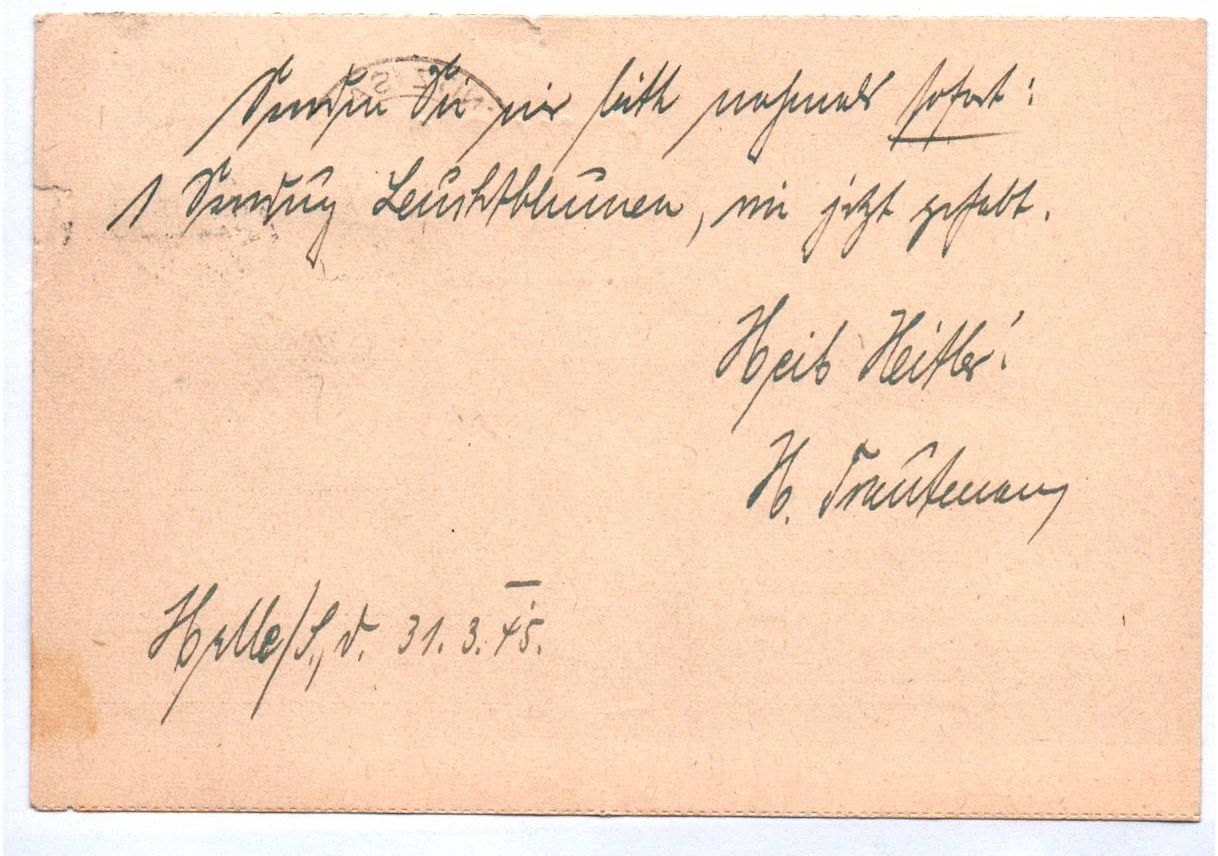 Senden Sie mir bitte nochmals sofort:
1 Sendung Leuchtblumen, wie jetzt gehabt.
Heil Hitler!
H. Trautmann
Halle/S., d. 31.3.45.